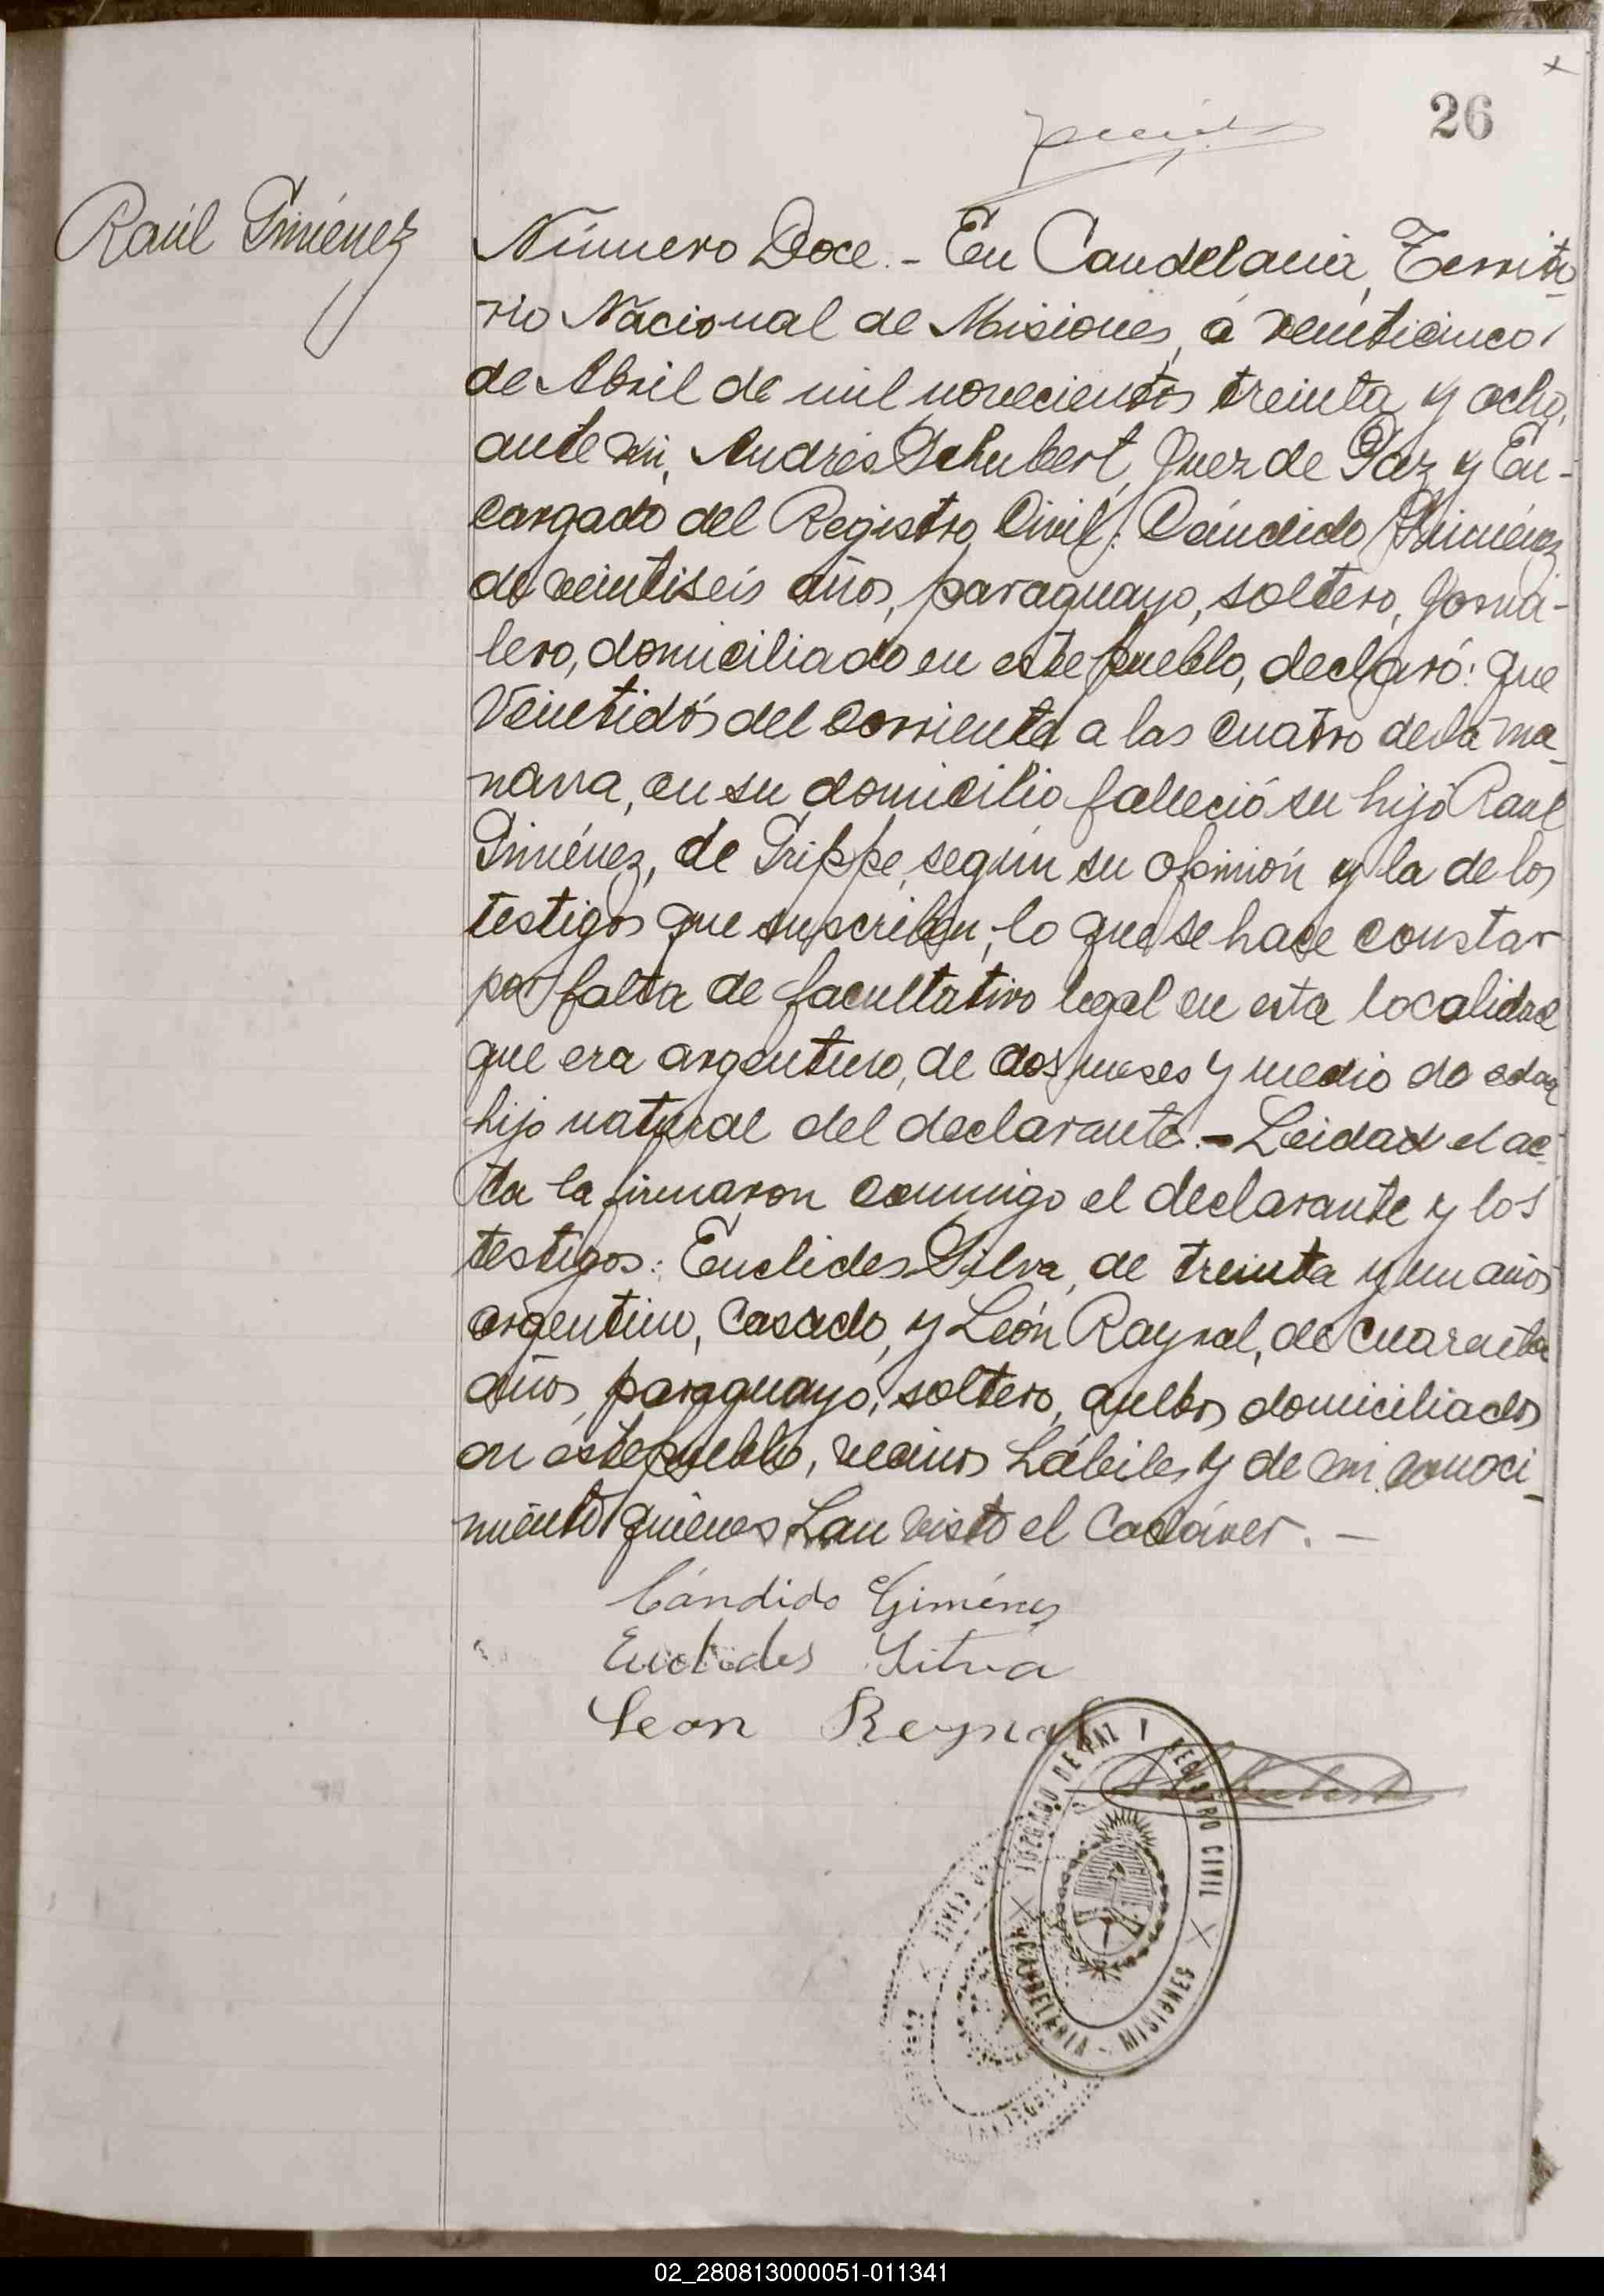 26
Raúl Giménez
Número Doce. - En Candelaria, Territo-
rio Nacional de Misiones, á veinticinco
de Abril de mil novecientos treinta y ocho,
ante mi, Andrés Schubert, Juez de Paz y En-
cargado del Registro Civil: Cándido Giménez
de veintiseis años, paraguayo, soltero, Jorna-
lero, domiciliado en este pueblo, declaró: que
Veintidós del corriente a las cuatro de la ma-
ñana, en su domicilio falleció su hijo Raul
Giménez, de Grippe, según su opinión y la de los
testigos que suscriben, lo que se hace constar
por falta de facultativo legal en esta localidad
que era argentino, de dos meses y medio de edad
hijo natural del declarante. - Leidad el ac-
ta la firmaron conmigo el declarante y los
testigos: Euclides Silva, de treinta y un años
argentino, casado, y León Raynal, de cuarenta
años, paraguayo, soltero, ambos domiciliados
en este pueblo, vecinos hábiles y de mi conoci-
miento quienes han visto el cadáver. -
Cándido Giménez
Euclides Silva
Leon Reynal
Schubert
JUZGADO DE PAZ Y REGISTRO CIVIL
CANDELARIA - MISIONES
02_280813000051-011341